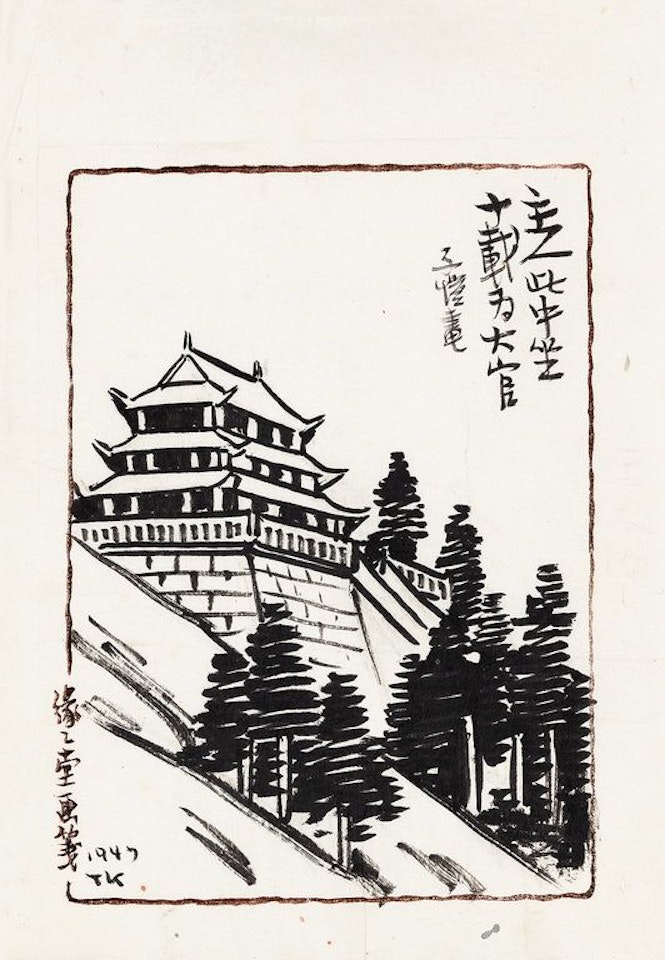 主人此中坐
十載为大官
子愷畫
緣々堂画箋
1947
TK